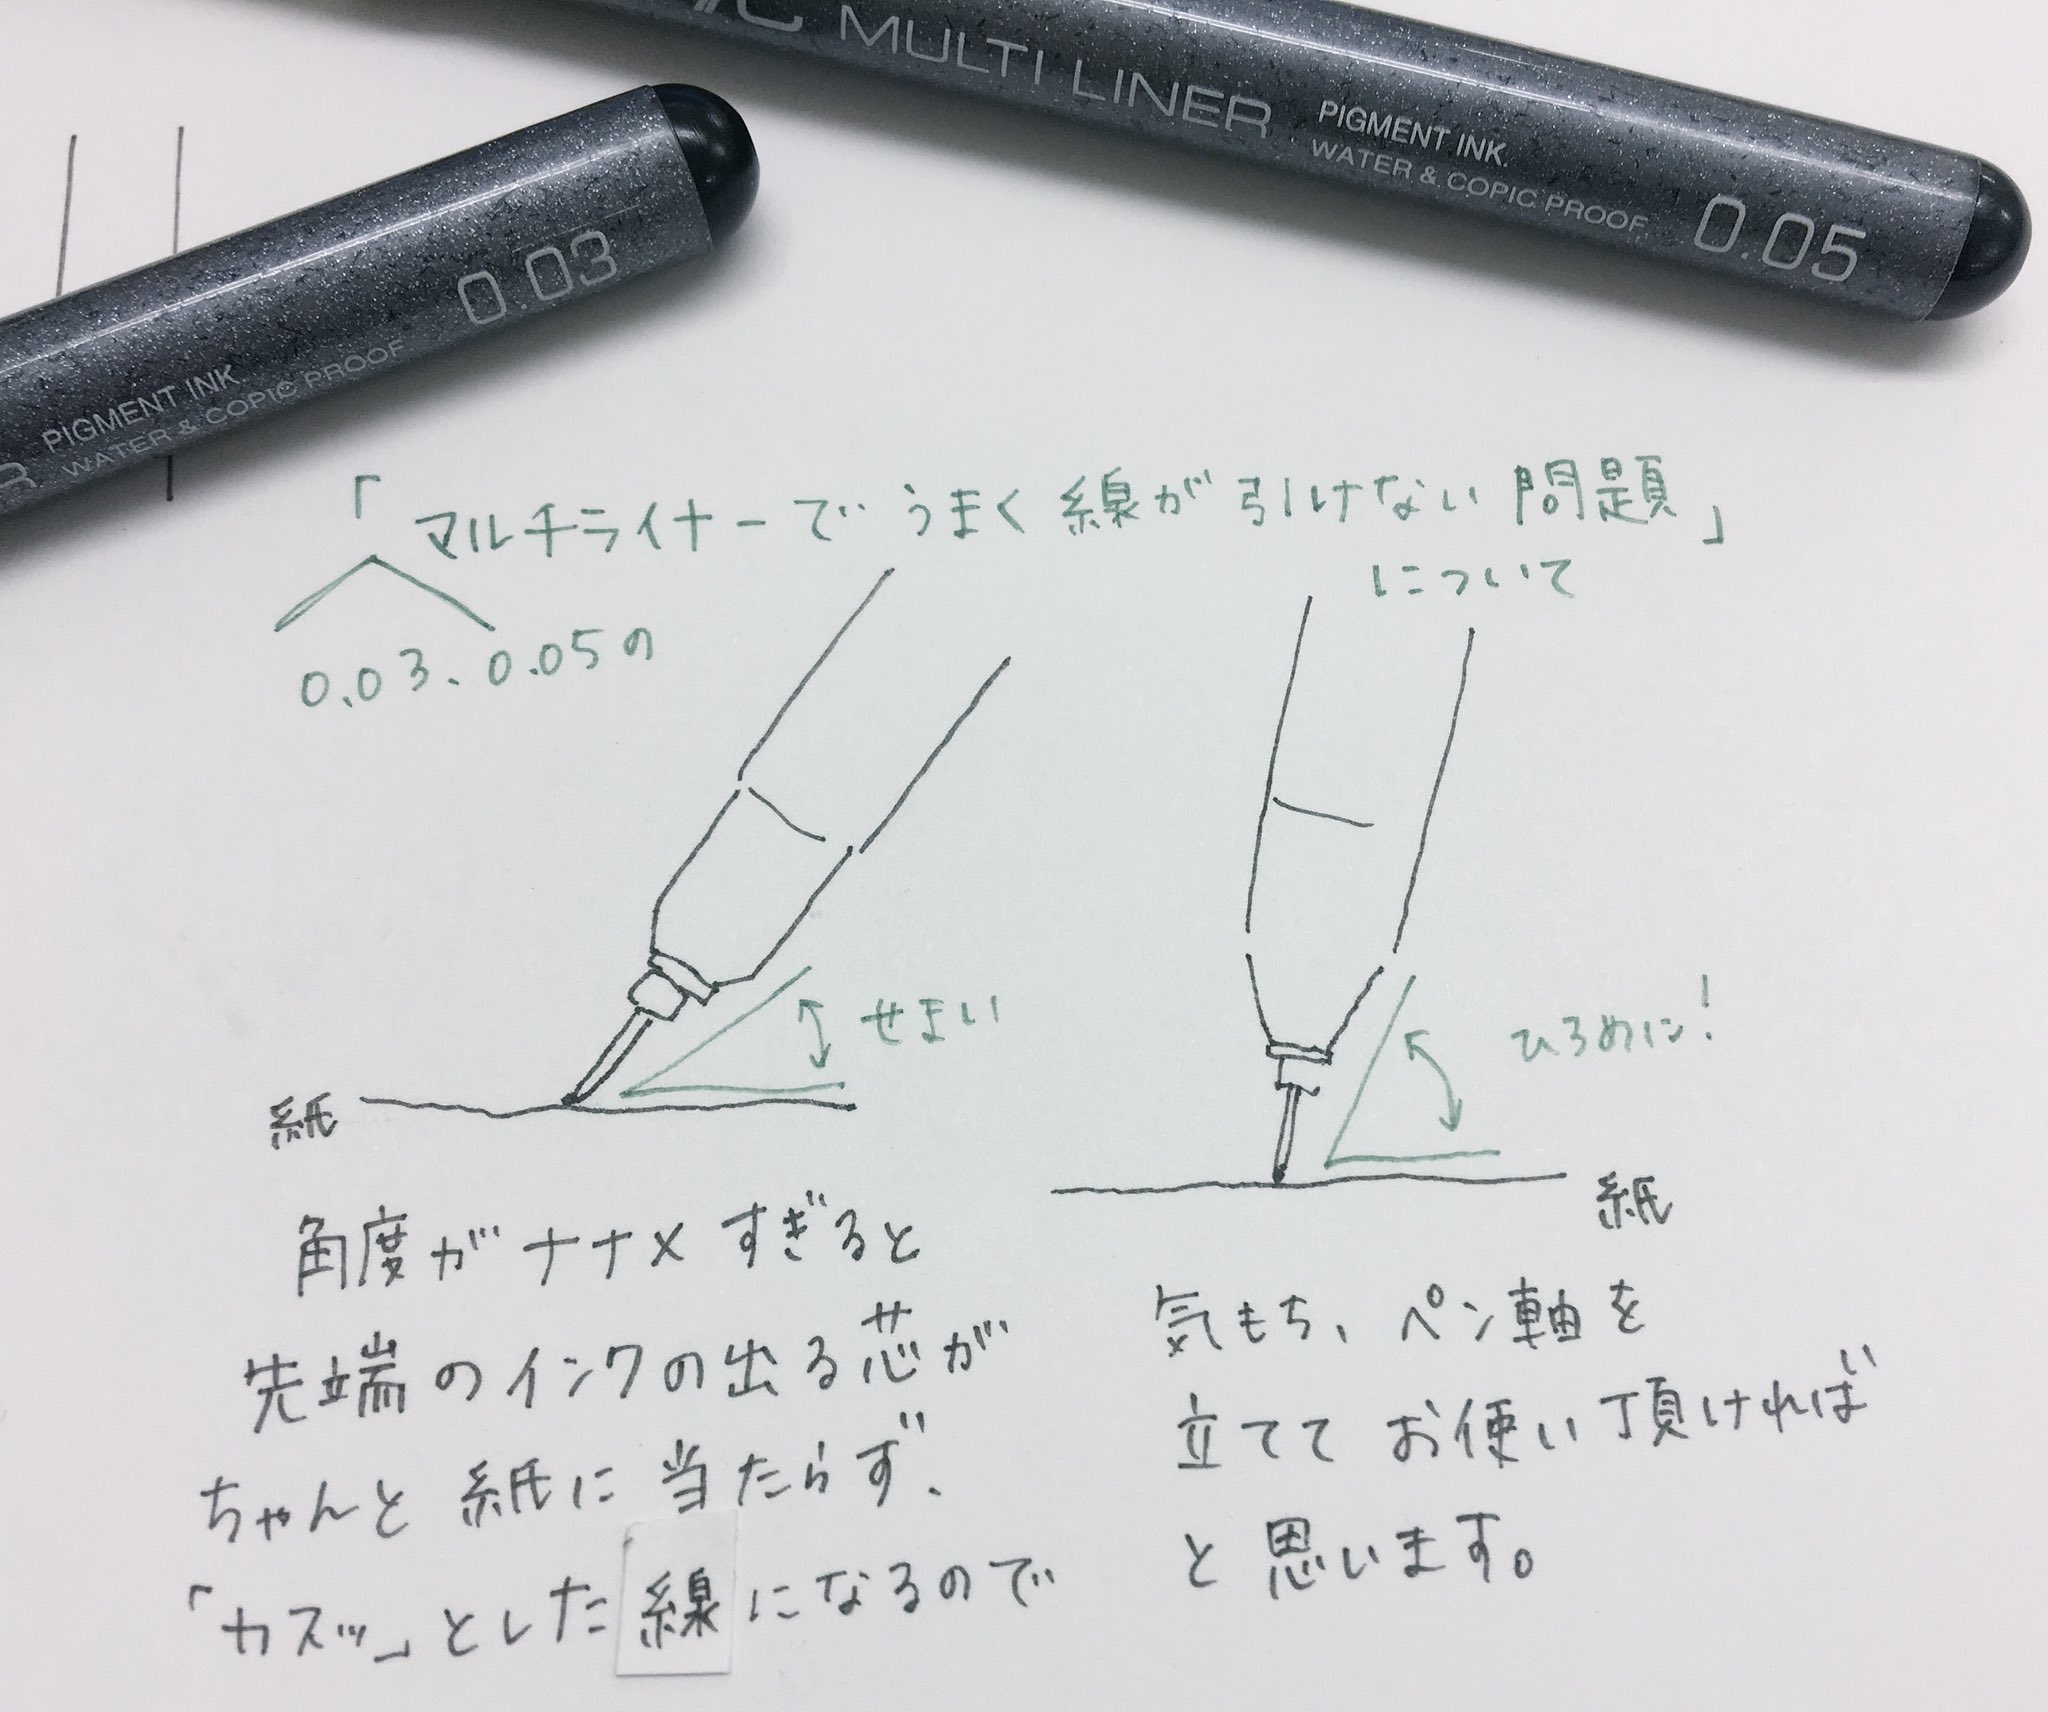 MULTI LINER
PIGMENT INK
WATER & COPIC PROOF
0.05
0.03
PIGMENT INK
WATER & COPIC PROOF
「マルチライナーでうまく線が引けない問題」
について
0.03、0.05の
せまい
ひろめに!
紙
紙
角度がナナメすぎると
先端のインクの出る芯が
ちゃんと紙に当たらず、
「カスッ」とした線になるので
気もち、ペン軸を
立ててお使い頂ければ
と思います。